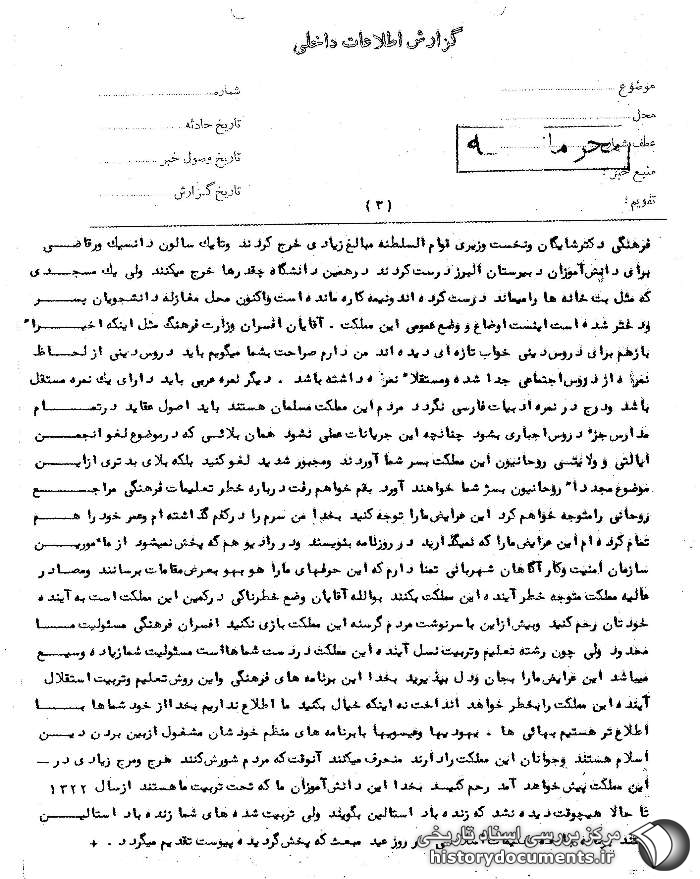 گزارش اطلاعات داخلی
موضوع
شماره
محل
تاریخ حادثه
عطف بشماره
محرمانه
تاریخ وصول خبر
منبع خبر
تاریخ گزارش
تقویم :
(۳)
فرهنگی دکترشایگان ونخست وزیری قوام السلطنه مبالغ زیادی خرج کردند وتایک سالون دانسیک ورقاصی
برای دانش‌آموزان دبیرستان البرز درست کردند درهمین دانشگاه چقدرها خرج میکنند ولی یک مسجدی
که مثل بت خانه ها رامیماند درست کرده اند ونیمه کاره مانده است واکنون محل مغازله دانشجویان پسر
ودختر شده است اینست اوضاع و وضع عمومی این مملکت . آقایان افسران وزارت فرهنگ مثل اینکه اخیرا"
بازهم برای دروس دینی خواب تازه ای دیده اند من دارم صراحت بشما میگویم باید دروس دینی از لحاظ
نمره از دروس اجتماعی جدا شده ومستقلا" نمره داشته باشد . دیگر نمره عربی باید دارای یک نمره مستقل
باشد ودرج در نمره ادبیات فارسی نگردد مردم این مملکت مسلمان هستند باید اصول عقاید درتمام
مدارس جزء دروس اجباری بشود چنانچه این جریانات عملی نشود همان بلائی که درموضوع لغو انجمن
ایالتی و ولایتی روحانیون این مملکت بسر شما آوردند ومجبور شدید لغو کنید بلکه بلای بدتری ازاین
موضوع مجددا" روحانیون بسر شما خواهند آورد بقم خواهم رفت درباره خطر تعلیمات فرهنگی مراجع
روحانی رامتوجه خواهم کرد این عرایض مارا توجه کنید بخدا من سرم را درکفم گذاشته ام وعمر خود را هم
تمام کرده ام این عرایض مارا که نمیگذارید در روزنامه بنویسند ودر رادیو هم که پخش نمیشود از مامورین
سازمان امنیت وکارآگاهان شهربانی تمنا دارم که این حرفهای مارا هو بهو بعرض مقامات برسانند ومصادر
عالیه مملکت متوجه خطر آینده این مملکت بکنند بوالله آقایان وضع خطرناکی درکمین این مملکت است به آینده
خودتان رحم کنید وبیش ازاین باسرنوشت مردم گرسنه این مملکت بازی نکنید افسران فرهنگی مسئولیت ما
محدود ولی چون رشته تعلیم وتربیت نسل آینده این مملکت دردست شماهااست مسئولیت شمازیاده وسیع
میباشد این عرایض مارا بجان ودل بپذیرید بخدا این برنامه های فرهنگی واین روش تعلیم وتربیت استقلال
آینده این مملکت رابخطر خواهد انداخت نه اینکه خیال بکنید ما اطلاع نداریم بخدااز خود شماها بما
اطلاع تر هستیم بهائی ها ، یهودیها وعیسویها بابرنامه های منظم خودشان مشغول ازبین بردن دین
اسلام هستند وجوانان این مملکت رادارند منحرف میکنند آنوقت که مردم شورش کنند هرج ومرج زیادی در
این مملکت پیش خواهد آمد رحم کنید بخدا این دانش‌آموزان ما که تحت تربیت ماهستند ازسال ۱۳۲۲
تا حالا هیچوقت دیده نشد که زنده باد استالین بگویند ولی تربیت شده های شما زنده باد استالین
در روز عید مبعث که پخش گردیده پیوست تقدیم میگردد . +
مرکز بررسی اسناد تاریخی
historydocuments.ir